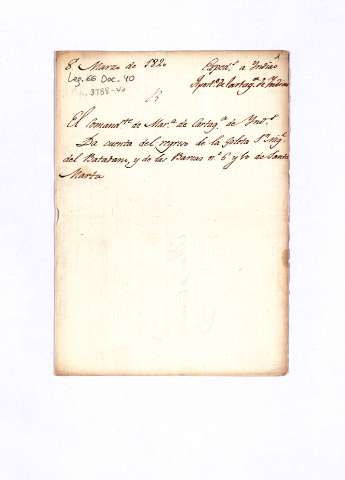 8 Marzo de 1820 Exped.s a Indias
Leg. 66 Doc. 40 Apost.o de Cartag.a de Indias
3788-40
El Comand.te de Mar.a de Cartag.a de Ind.s
Da cuenta del regreso de la Goleta
del Batabano, y de las Barcas n.o 6 y 10 de Santa
Marta